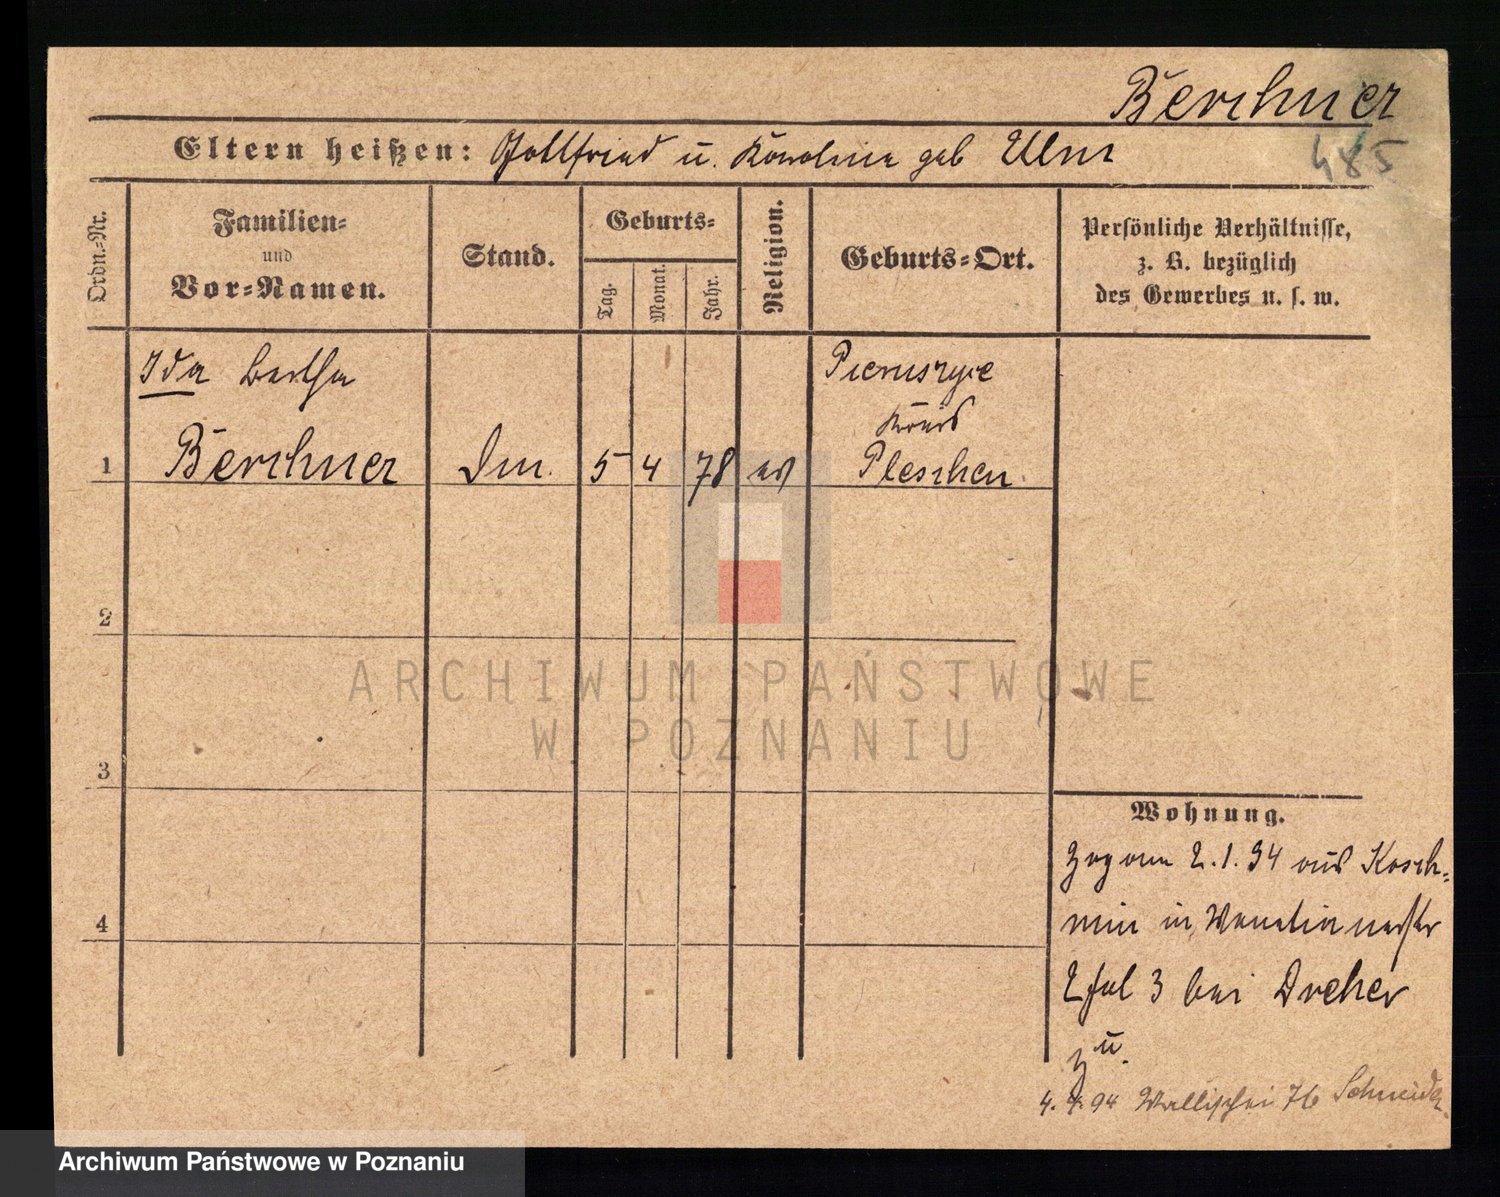 Berchner
485
Eltern heißen: Gottfried u. Karoline geb Ulm
Ordn.=Nr.
Familien=
und
Vor=Namen.
Stand.
Geburts=
Tag.
Monat.
Jahr.
Religion.
Geburts=Ort.
Persönliche Verhältnisse,
z. B. bezüglich
des Gewerbes u. s. w.
Ida Bertha
Pieruszyce
Kreis
1 Berchner Dm. 5 4 78 ev Pleschen
2
ARCHIWUM PAŃSTWOWE
W POZNANIU
3
Wohnung.
Zog am 2.1.94 aus Kosch=
min in
4
3 bei Dreher
zu.
4.4.94 Wallischei 76 Schneider
Archiwum Państwowe w Poznaniu